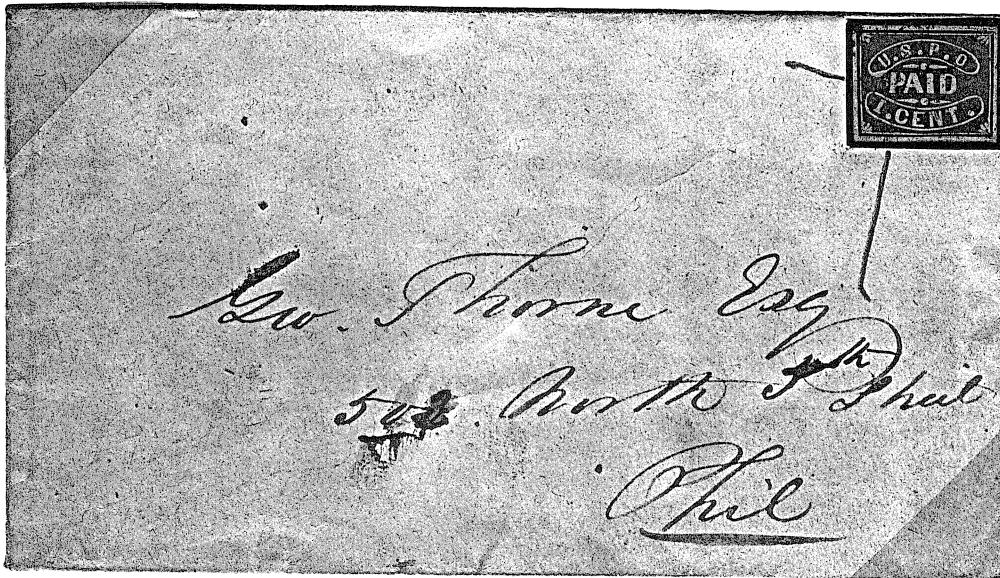 U.S.P.O
PAID
1.CENT.
Geo. Thorne Esq
North 5th
Phil